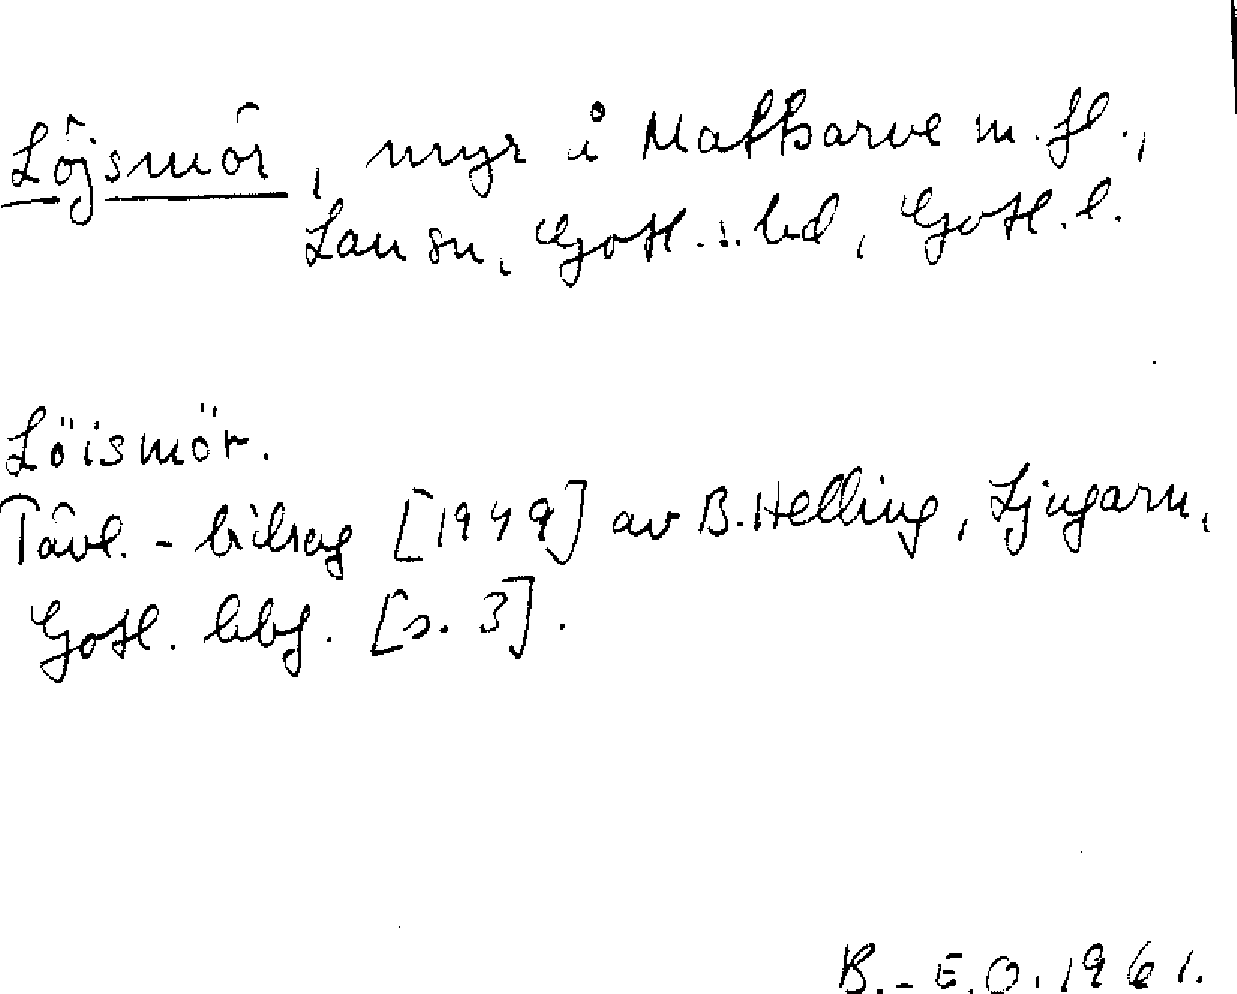 Löjsmör, myr i Mattsarve m. fl.,
Lau sn, Gotl. s. hd, Gotl. l.
Löismör.
Tävl. - bidrag [1949] av B. Helling, Ljugarn,
Gotl. [s. 3].
B. - E. O. 1961.